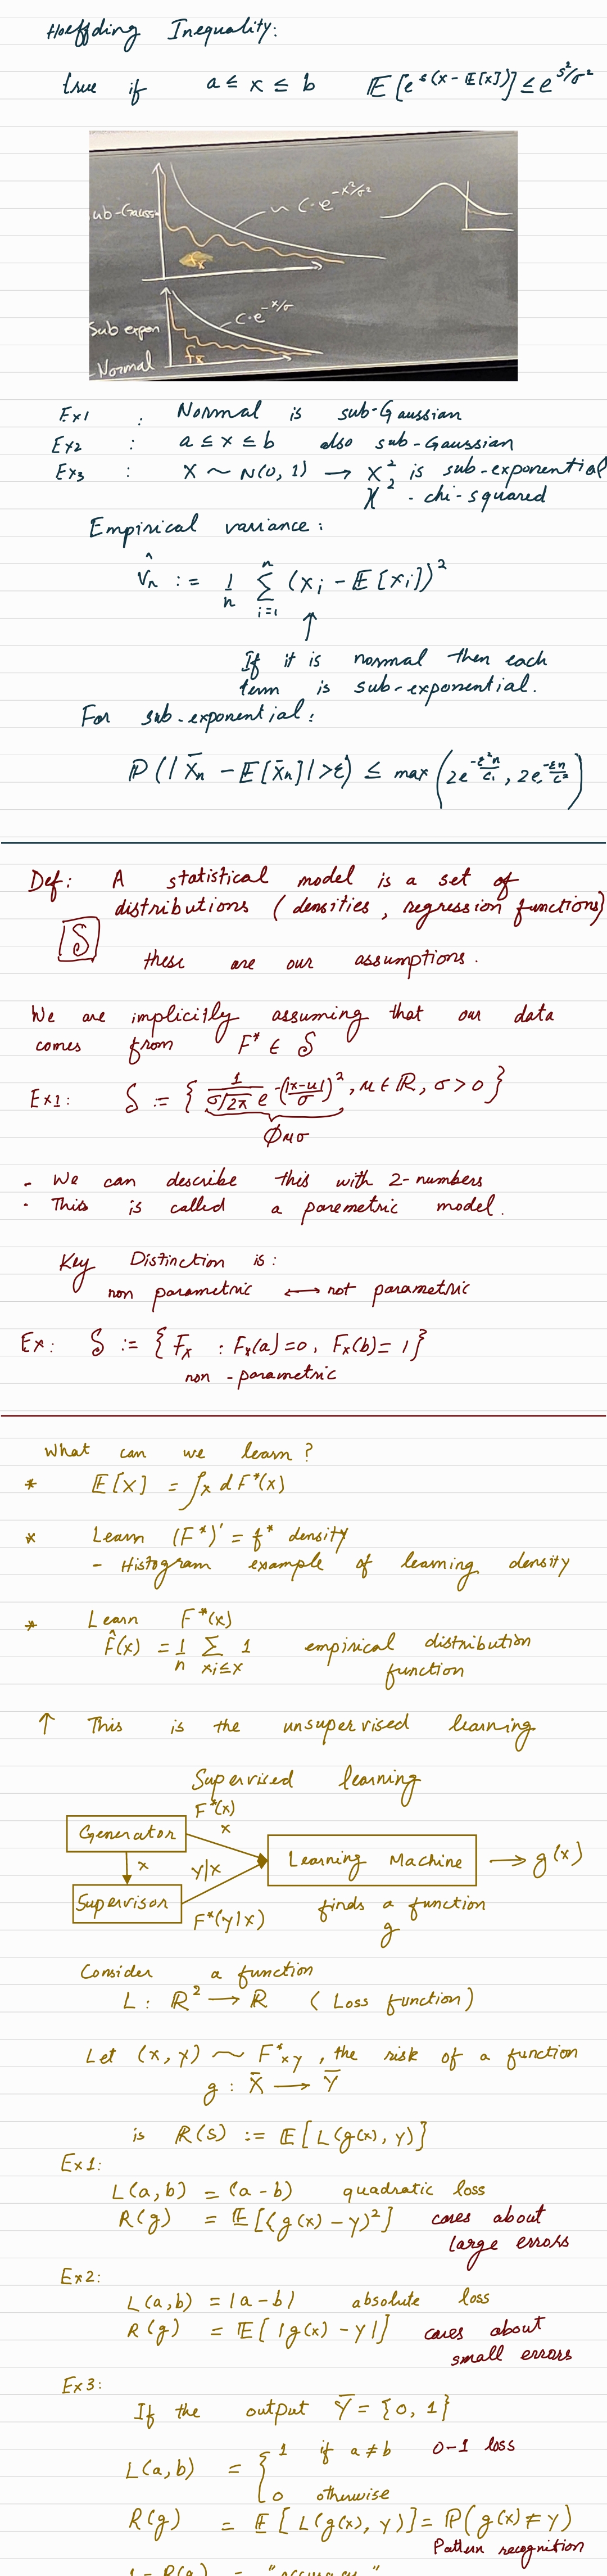 Hoeffding Inequality:
true if a ≤ x ≤ b 𝔼[e^{s(x - 𝔼[x])}] ≤ e^{s²/σ²}
ub-Gauss
~ C·e^{-x²/σ²}
fx
Sub expon
C·e^{-x/σ}
fx
-Normal
Ex1 : Normal is sub-Gaussian
Ex2 : a ≤ x ≤ b also sub-Gaussian
Ex3 : X ~ N(0, 1) → X² is sub-exponential
χ² - chi-squared
Empirical variance:
V̂n := 1/n Σ_{i=1}^{n} (xi - 𝔼[xi])²
↑
If it is normal then each
term is sub-exponential.
For sub-exponential:
ℙ(|X̄n - 𝔼[X̄n]| > ε) ≤ max(2e^{-ε²n/c₁}, 2e^{-εn/c²})
Def: A statistical model is a set of
distributions (densities, regression functions)
S
these are our assumptions.
We are implicitly assuming that our data
comes from F* ∈ S
Ex1: S := { 1/(σ√2π) e^{-(|x-u|/σ)²}, μ ∈ ℝ, σ > 0 }
ϕμσ
- We can describe this with 2-numbers
- This is called a paremetric model.
Key Distinction is:
non parametric ⟷ not parametric
Ex: S := { Fx : Fx(a) = 0, Fx(b) = 1 }
non-parametric
What can we learn?
* 𝔼[X] = ∫x dF*(x)
* Learn (F*)' = f* density
- Histogram example of learning density
* Learn F*(x)
F̂(x) = 1/n Σ_{xi≤x} 1 empirical distribution
function
↑ This is the unsupervised learning
Supervised learning
F*(x)
Generator x
Learning Machine → g(x)
x y|x
Supervisor
F*(y|x)
finds a function
g
Consider a function
L: ℝ² → ℝ (Loss function)
Let (x, y) ~ F*xy, the risk of a function
g: X̄ → Ȳ
is R(s) := 𝔼[L(g(x), y)]
Ex1:
L(a,b) = (a - b) quadratic loss
R(g) = 𝔼[(g(x) - y)²] cares about
large errors
Ex2:
L(a,b) = |a - b| absolute loss
R(g) = 𝔼[|g(x) - y|] cares about
small errors
Ex3:
If the output Ȳ = {0, 1}
L(a,b) = { 1 if a ≠ b 0-1 loss
0 otherwise
R(g) = 𝔼[L(g(x), y)] = ℙ(g(x) ≠ y)
Pattern recognition
1 - R(g) = "accuracy"